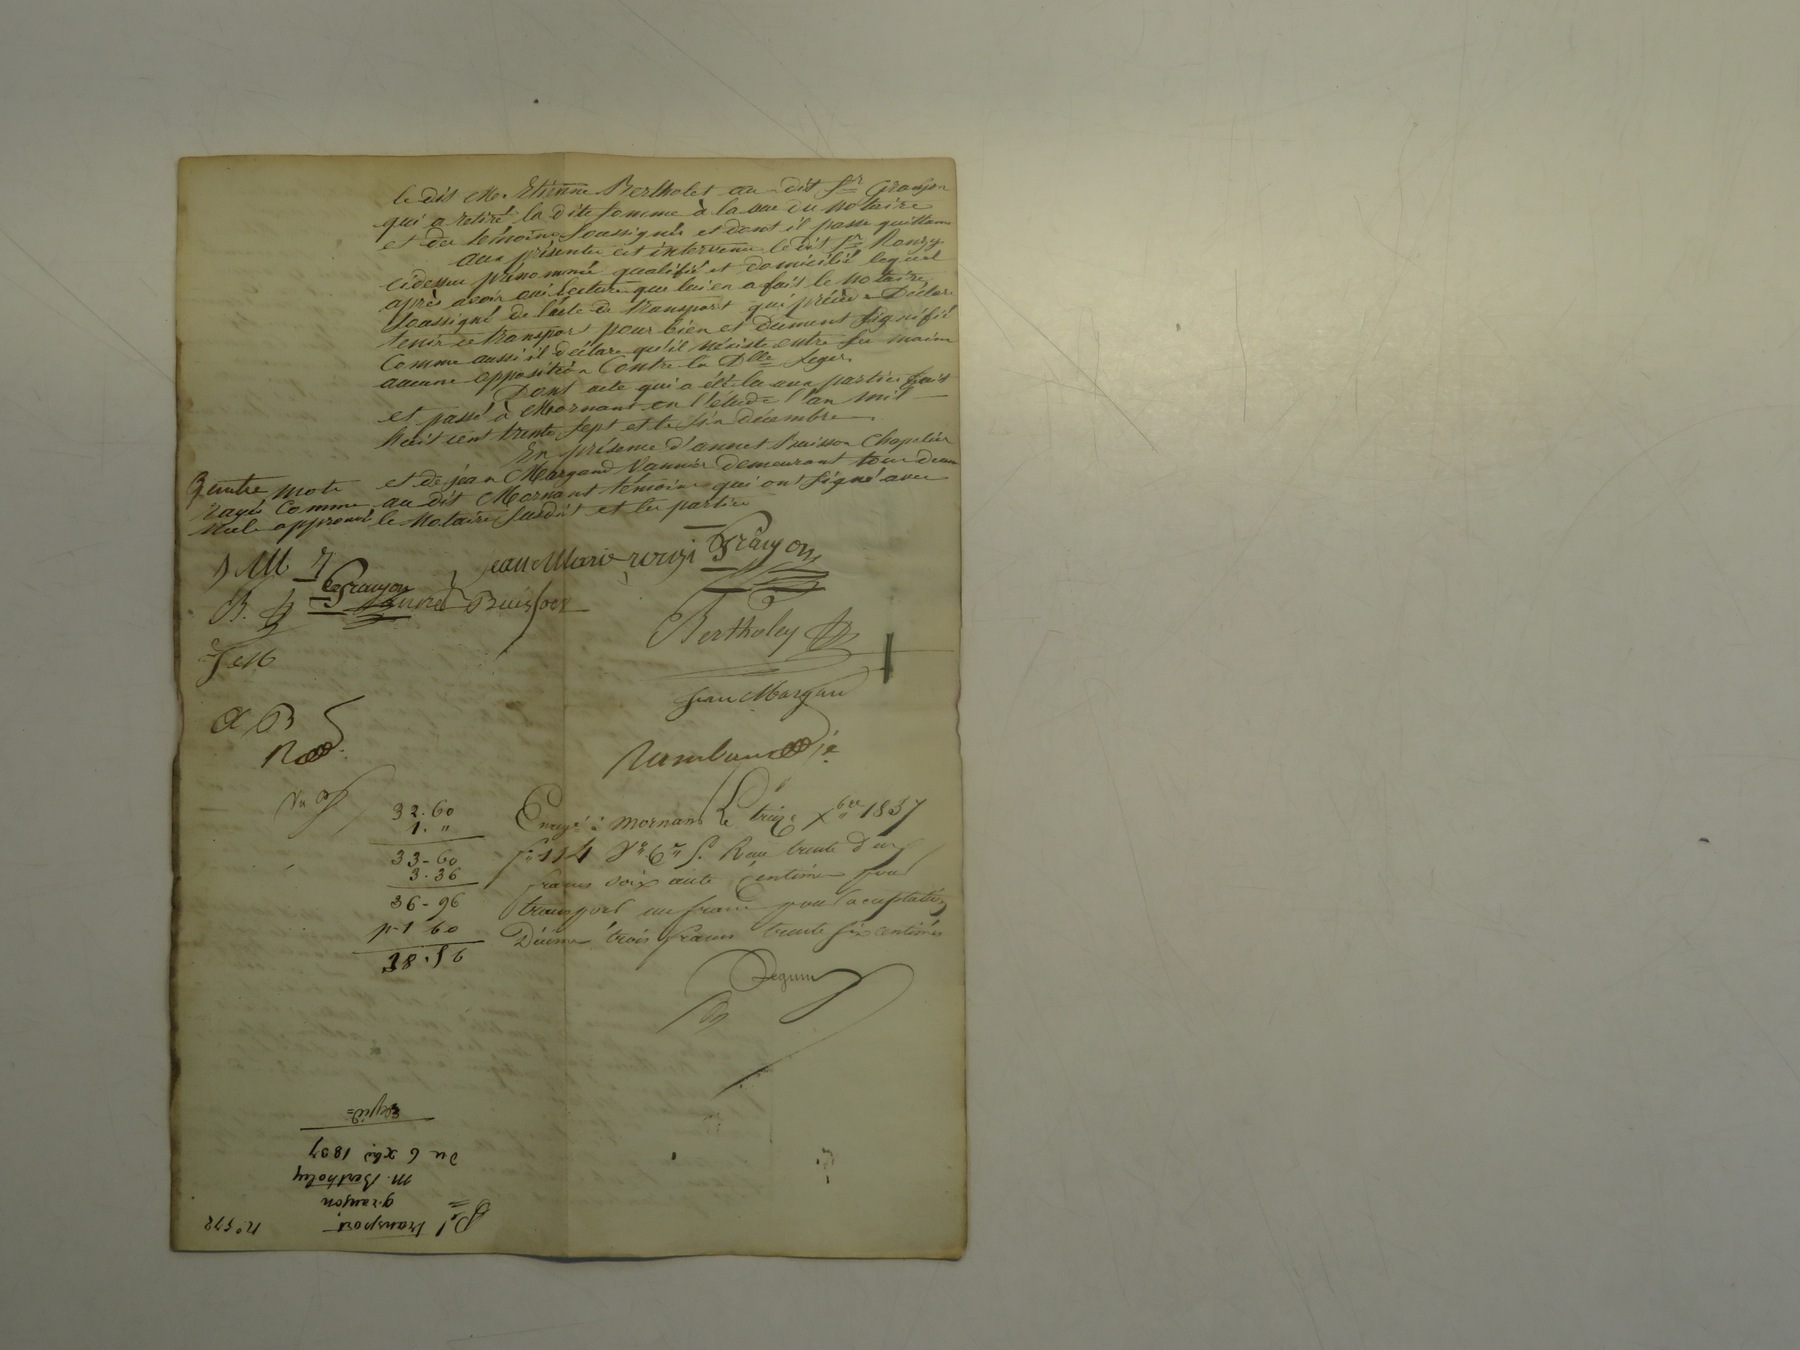 le dit Me. Etienne Bertholet au dit Sr Granjon
qui a retiré la dite somme à la vue du notaire
et des témoins soussignés et dont il passe quittance
aux présentes est intervenu le dit Sr Ronzy
cidessus prénommé qualifié et domicilié lequel
après avoir oui lecture que lui en a fait le notaire
soussigné de l'acte de transport qui précède Déclare
tenir ce transport pour bien et dument signifié
Comme aussi il déclare qu'il n'existe entre ses mains
aucune opposition Contre la Dlle Leger.
Dont acte qui a été lu aux parties fait
et passé à Mornant en l'étude l'an mil
huit cent trente sept et le six décembre
En présence d'annet Buisson Chapelier
et de jean Margand Vannier demeurant tous deux
au dit Mornant témoins qui ont signé avec
le Notaire susdit et les parties
mots
rayés Comme
nuls approuvé
J M
Granjon
jean Marie ronzi
Granjon
B.
Buisson
Bertholey
J M
Jean Margan
A B
R
32. 60
1. "
33-60
3. 36
36-96
p-1 60
38. 56
Enregé à Mornant Le treize Xbre 1837
fo 114 Vo Ce 5. Reçu trente deux
francs soixante centimes pour
transport un franc pour l'acceptation
Décime trois francs trente six centimes
Seguin
no 572
transport
granjon
M. Bertholey
Du 6 xbre 1837
expédié